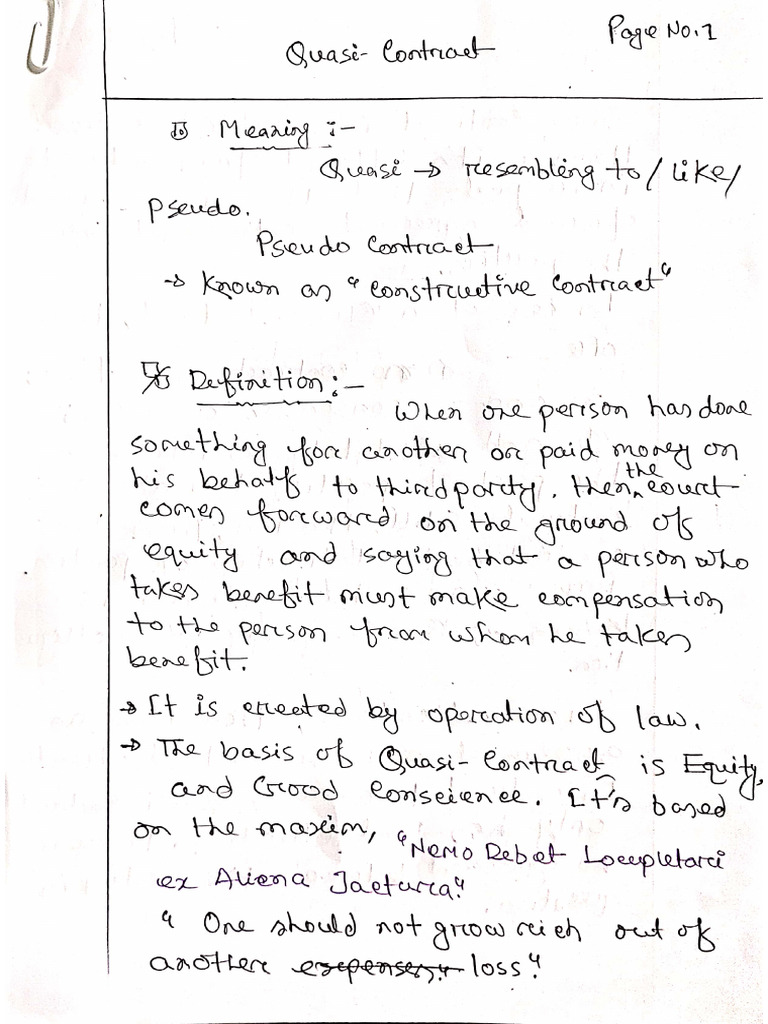 Page No.1
Quasi-Contract
Meaning :-
Quasi → resembling to/like/
Pseudo.
Pseudo Contract
→ Known as "constructive contract"
Definition :-
When one person has done
something for another or paid money on
his behalf to third party, then the court
comes forward on the ground of
equity and saying that a person who
takes benefit must make compensation
to the person from whom he takes
benefit.
→ It is created by operation of law.
→ The basis of Quasi-Contract is Equity,
and Good Conscience. It's based
on the maxim, "Nemo Debet Locupletari
ex Aliena Jactura"
" One should not grow rich out of
another expenses." loss."